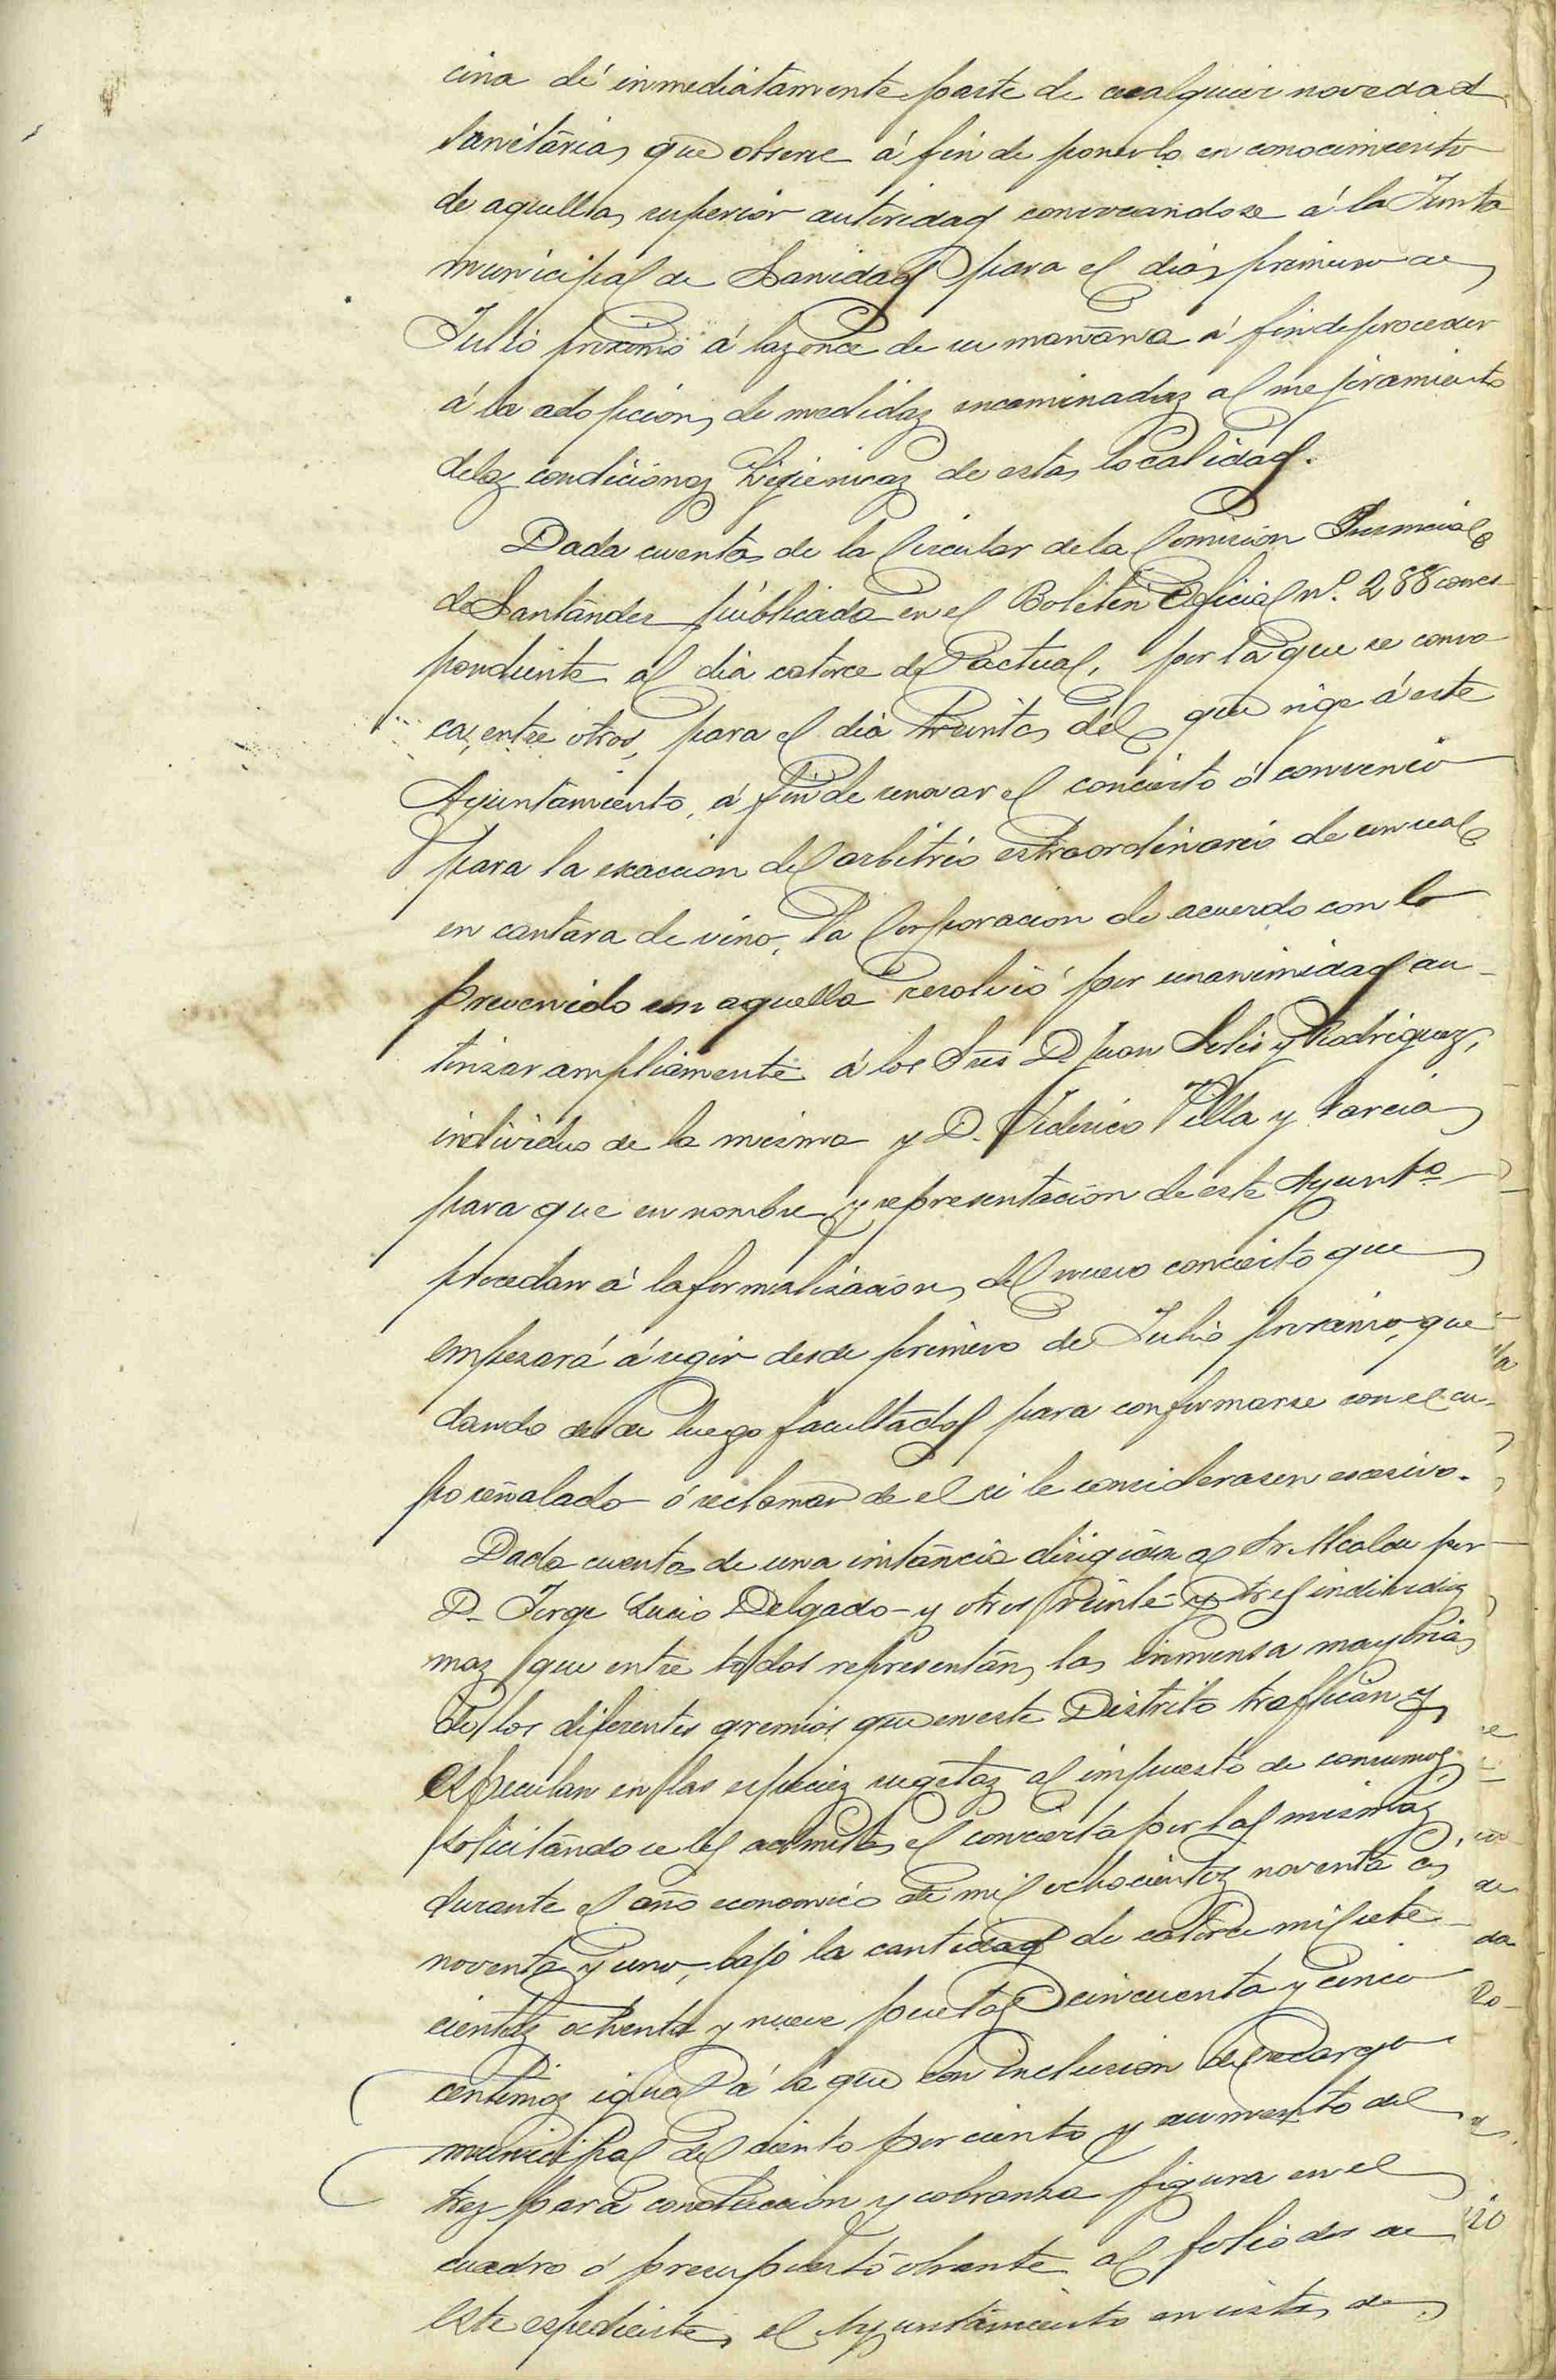 cina dé inmediatamente parte de cualquier novedad
sanitaria que observe á fin de ponerlo en conocimiento
de aquella superior autoridad convocandose á la Junta
municipal de Sanidad para el dia primero de
Julio próximo á las once de su mañana á fin de proceder
á la adopcion de medidas encaminadas al mejoramiento
de las condiciones higienicas de esta localidad.
Dada cuenta de la Circular de la Comision Provincial
de Santander publicada en el Boletin Oficial nº. 288 corres-
pondiente al dia catorce del actual, por la que se convo-
ca, entre otros, para el dia treinta del que rige á este
Ayuntamiento, á fin de renovar el concierto ó convenio
para la exaccion del arbitrio estraordinario de un real
en cantara de vino, la Corporacion de acuerdo con lo
prevenido en aquella resolvió por unanimidad au-
torizar ampliamente á los Sres D. Juan Solis y Rodriguez,
individuo de la misma y D. Federico Villa y Garcia
para que en nombre y representacion de este Ayuntº
procedan á la formalizacion del nuevo concierto que
empezará á regir desde primero de Julio proximo, que
dando desde luego facultados para conformarse con el cu-
po señalado ó reclamar de el si le considerasen escesivo.
Dada cuenta de una instancia dirigida al Sr. Alcalde por
D. Jorge Lucio Delgado y otros veinte y tres individuos
mas que entre todos representan la inmensa mayoria
de los diferentes gremios que en este Distrito trafican y
especulan en las especies sugetas al impuesto de consumos,
solicitando se les admita el concierto por las mismas
durante el año economico de mil ochocientos noventa á
noventa y uno, bajo la cantidad de catorce mil sete-
cientas ochenta y nueve pesetas cincuenta y cinco
centimos igual á la que con inclusion del recargo
municipal del ciento por ciento y aumento del
tres para conduccion y cobranza figura en el
cuadro ó presupuesto obrante al folio dos de
este espediente, el Ayuntamiento en vista de